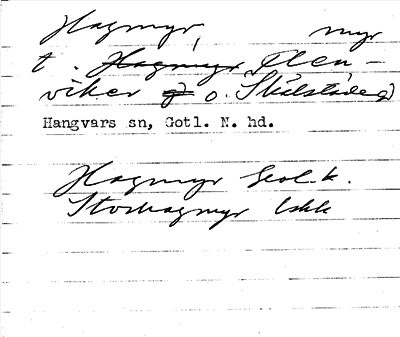 Hagmyr, myr
t. Hagmyr Elen-
viker o. Skulstäde
Hangvars sn, Gotl. N. hd.
Hagmyr Geol. k.
Storhagmyr Ekk